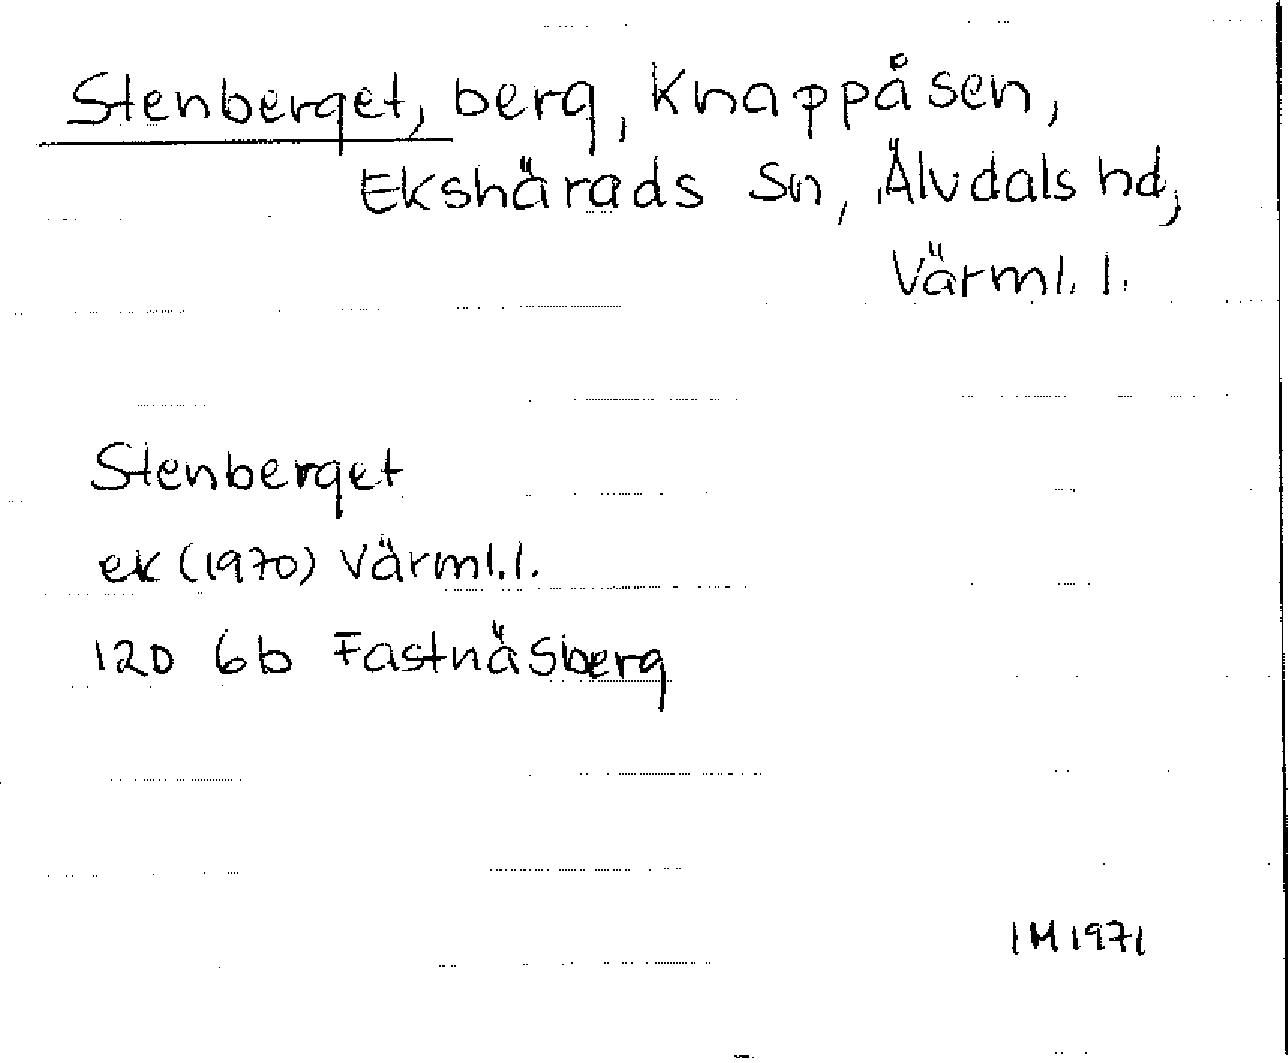 Stenberget, berg, Knappåsen,
Ekshärads sn, Älvdals hd,
Värml. l.
Stenberget
ek (1970) Värml. l.
12D 6b Fastnäsberg
IM 1971